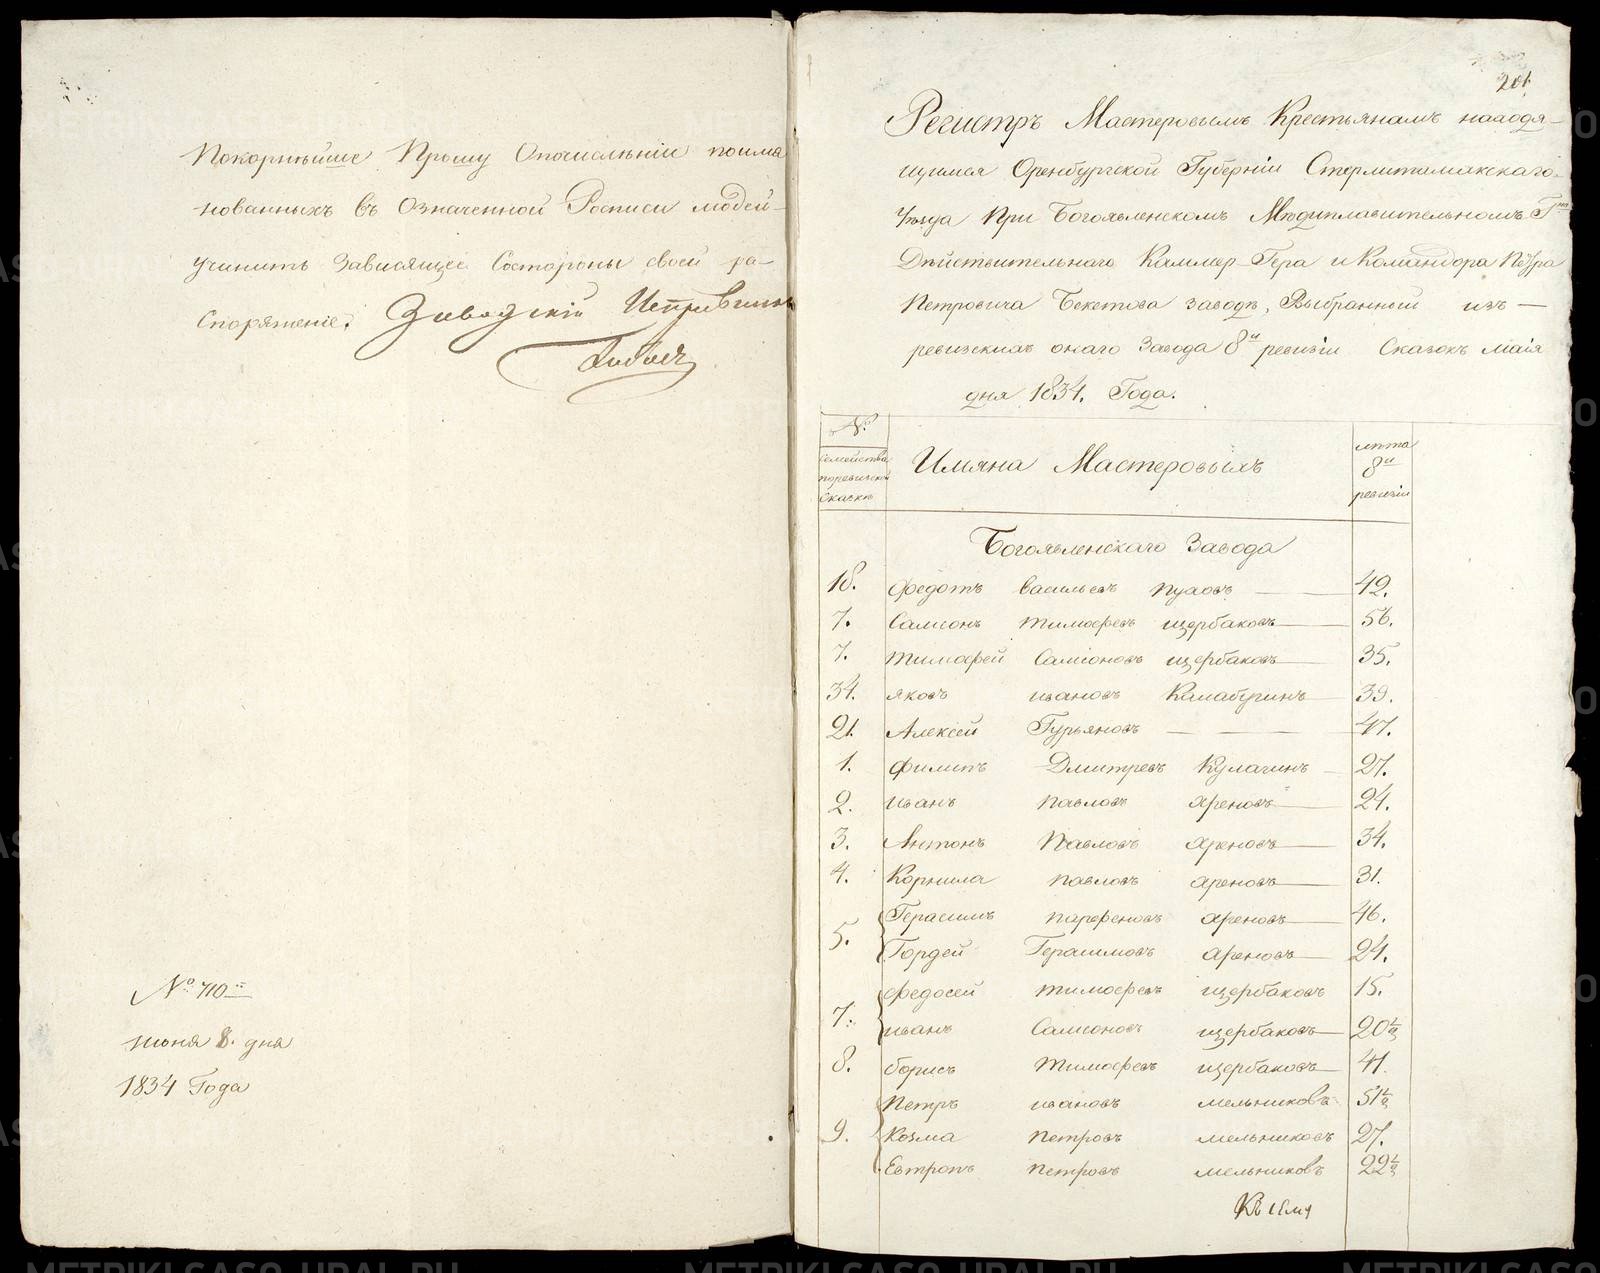 Покорнѣйше Прошу Опочисленіи поимя
нованныхъ въ Означенной Росписи людей
учинить Зависящее Состороны своей ра-
споряженіе. Заводскій Исправникъ
№ 710
июня 8. дня
1834 Года
201
Регистръ Мастеровымъ Крестьянамъ находя-
щимся Оренбургской Губерніи Стерлитамакскаго
Уѣзда При Богоявленскомъ Мѣдиплавительномъ Гна
Дѣйствительнаго Каммер-Гера и Командора Пётра
Петровича Бекетова заводѣ, Выбранный изъ —
ревизскихъ онаго Завода 8й ревизіи Сказокъ маія
дня 1834. Года.
№
семейства
поревизской
сказке
Имяна Мастеровыхъ
лѣта
8й
ревизіи
Богоявленскаго Завода
18. Федотъ васильевъ пуховъ — — 42.
7. Самсонъ тимофеевъ щербаковъ — 56.
7. тимофей Самсоновъ щербаковъ — 35.
34. яковъ ивановъ Камабуринъ — 39.
21. Алексей Гурьяновъ — — — 47.
1. филипъ Дмитревъ Кулагинъ — 27.
2. иванъ павловъ ареновъ — 24.
3. Антонъ Павловъ ареновъ — 34.
4. Корнила павловъ ареновъ — 31.
5. Герасимъ парфеновъ ареновъ — 46.
Гордей Герасимовъ ареновъ — 24.
7. федосей тимофеевъ щербаковъ 15.
иванъ Самсоновъ щербаковъ — 20½
8. борисъ тимофеевъ щербаковъ — 41.
9. Петръ ивановъ мельниковъ 51½
Козма петровъ мельниковъ 27.
Евтропъ петровъ мельниковъ 22½
Къ сему